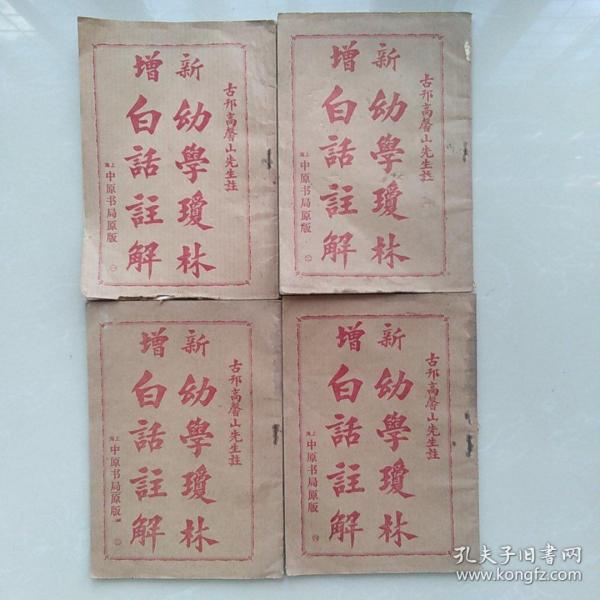 古邗高馨山先生註
新增
幼學瓊林
白話註解
上海中原书局原版
一
古邗高馨山先生註
新增
幼學瓊林
白話註解
上海中原书局原版
二
古邗高馨山先生註
新增
幼學瓊林
白話註解
上海中原书局原版
三
古邗高馨山先生註
新增
幼學瓊林
白話註解
上海中原书局原版
四
孔夫子旧书网
www.kongfz.com